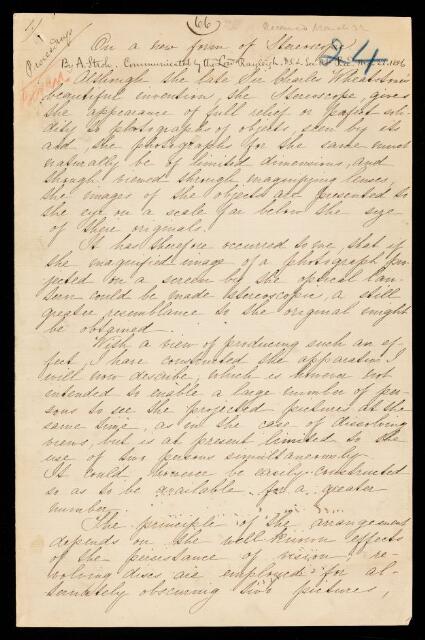 1/
66
Received March 27
Proceedings
On a new form of Stereoscope
24
By A. Stroh. Communicated by the Lord Rayleigh, Sec. R.S.
Although the late Sir Charles Wheatstone's
beautiful invention, the Stereoscope, gives
the appearance of full relief or perfect soli-
dity to photographs of objects, seen by its
aid, the photographs for the same must
naturally be of limited dimensions, and
though viewed through magnifying lenses,
the images of the objects are presented to
the eye on a scale far below the size
of their originals.
It has therefore occurred to me, that if
the magnified image of a photograph pro-
jected on a screen by the optical lan-
tern could be made stereoscopic, a still
greater resemblance to the original might
be obtained.
With a view of producing such an ef-
fect, I have constructed the apparatus I
will now describe, which is however not
intended to enable a large number of per-
sons to see the projected pictures at the
same time, as in the case of dissolving
views, but is at present limited to the
use of two persons simultaneously.
It could however be easily constructed
so as to be available for a greater
number.
The principle of the arrangement
depends on the well known effects
of the persistance of vision; re-
volving discs are employed for al-
ternately obscuring two pictures,